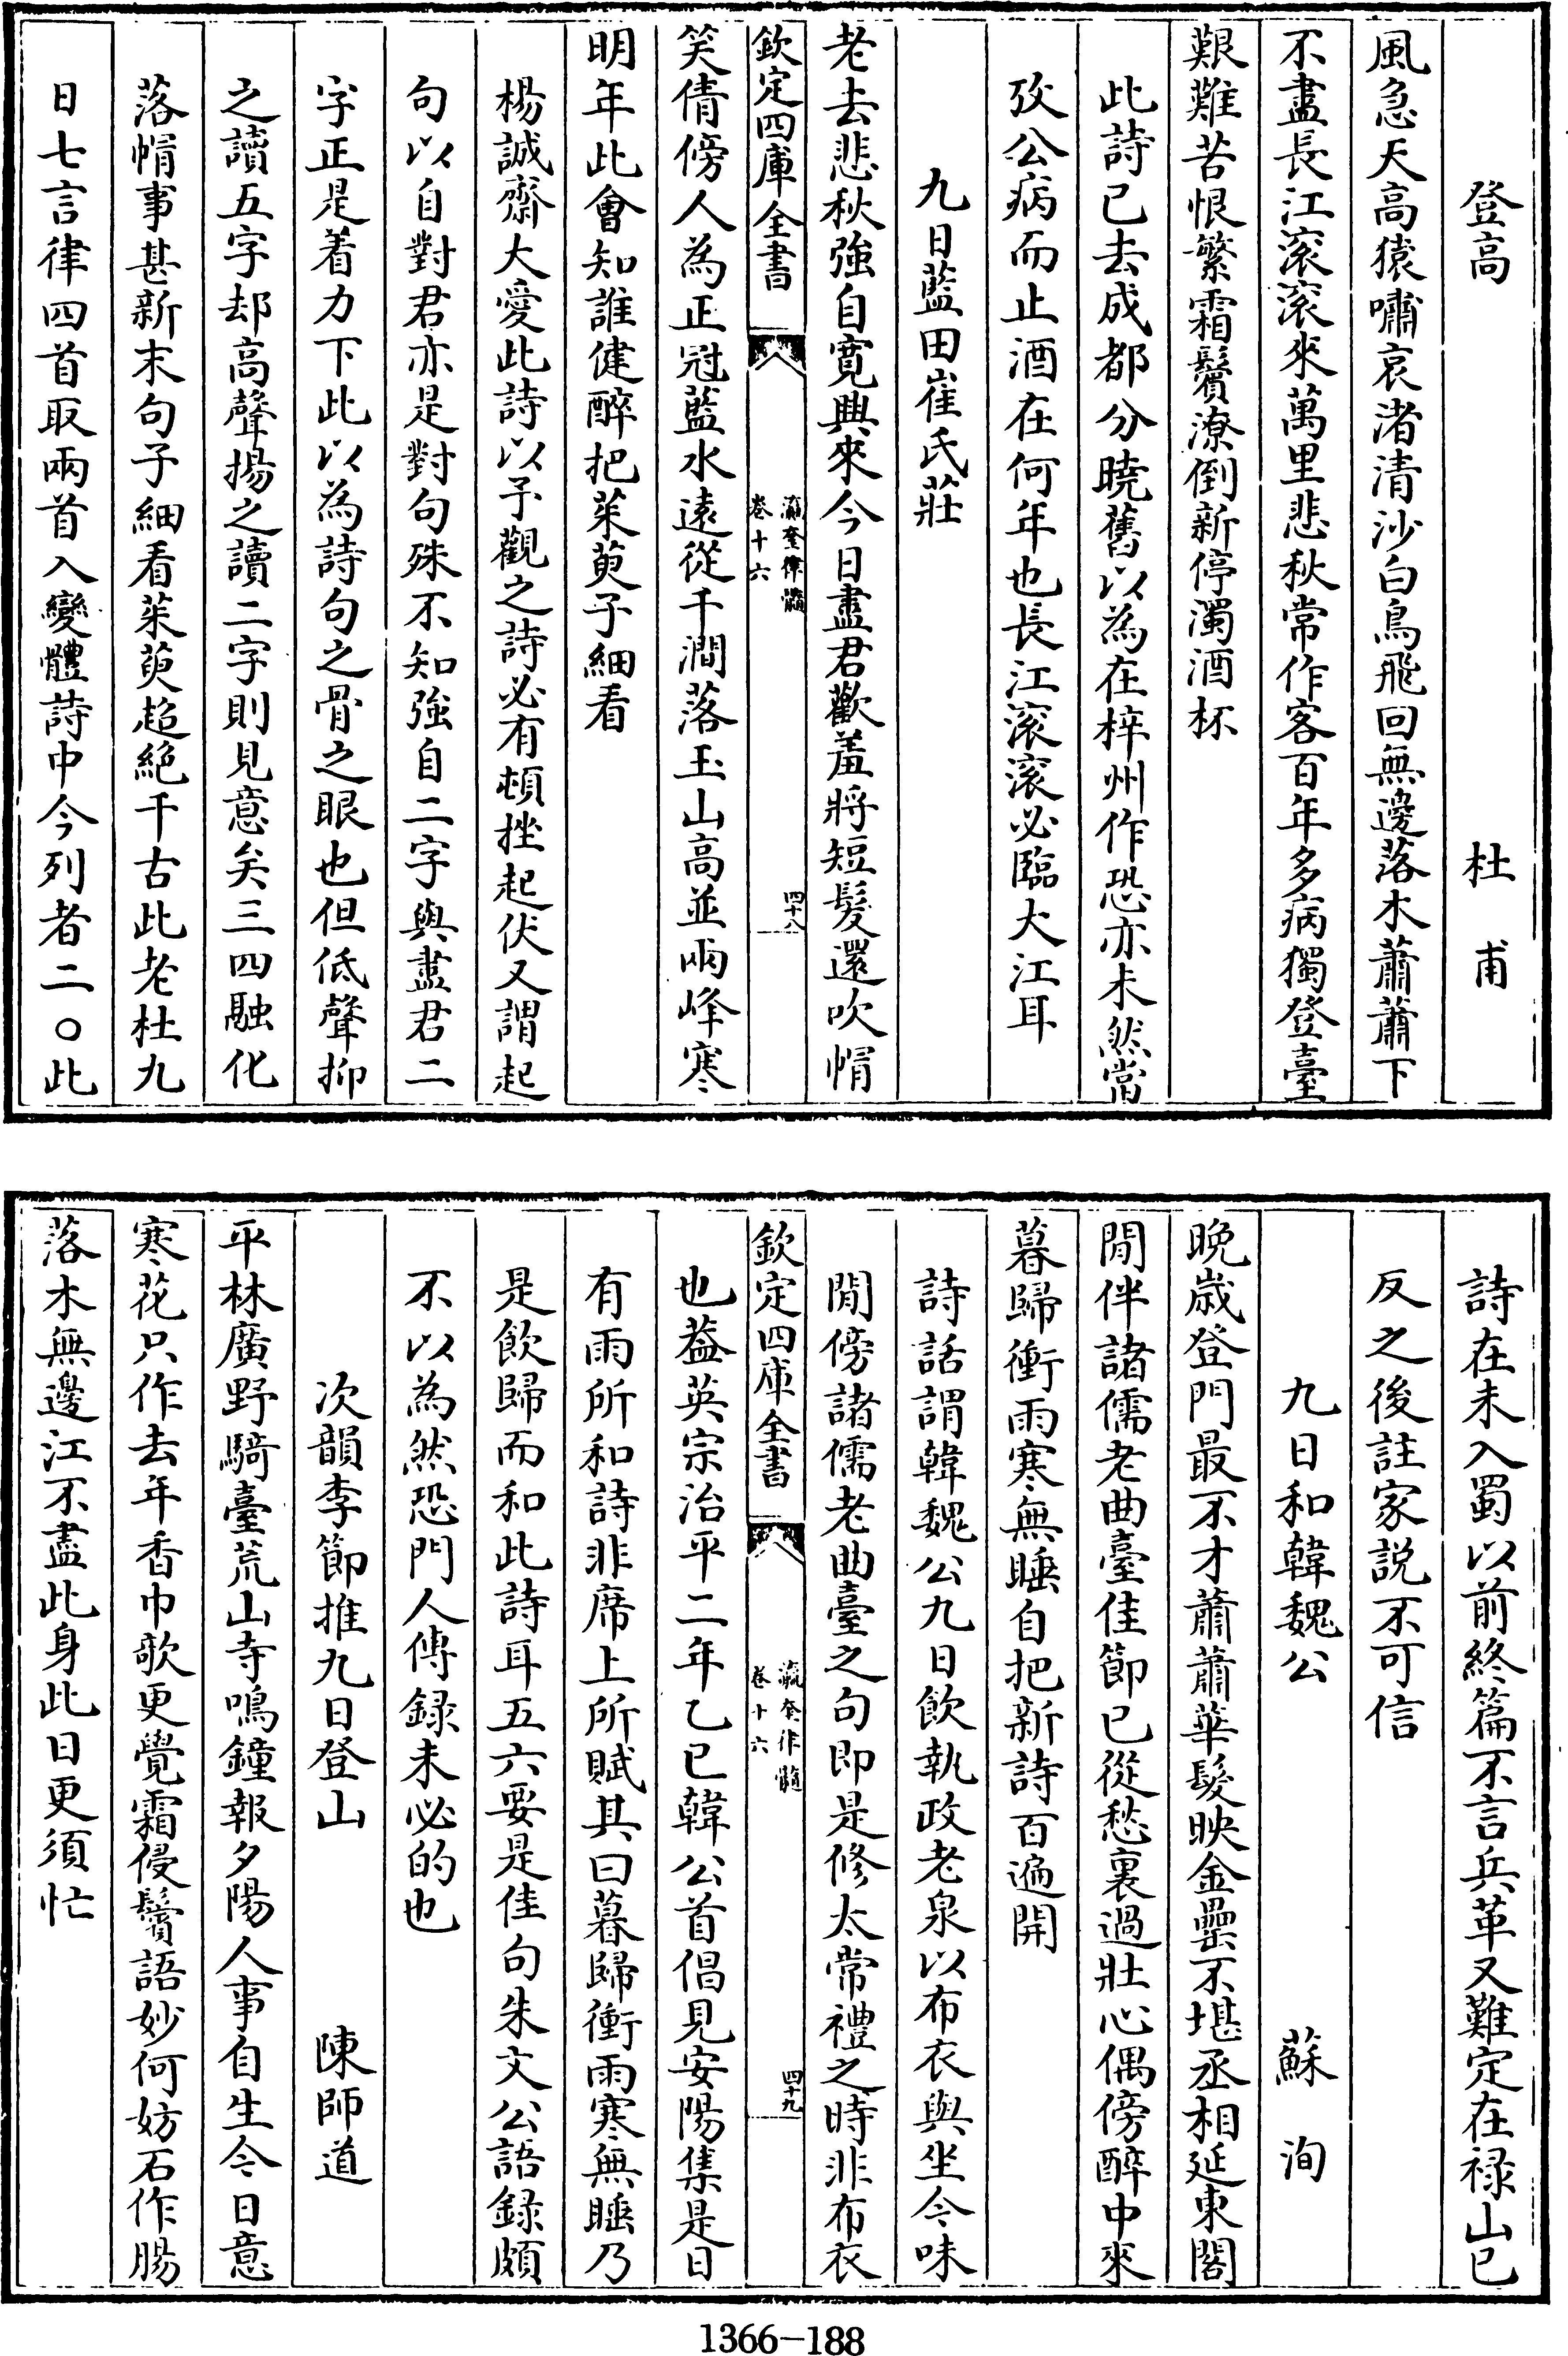 登高　杜甫
風急天高猿嘯哀渚清沙白鳥飛回無邊落木蕭蕭下
不盡長江滚滚來萬里悲秋常作客百年多病獨登臺
艱難苦恨繁霜鬢潦倒新停濁酒杯
此詩已去成都分曉舊以為在梓州作恐亦未然當
攷公病而止酒在何年也長江滚滚必臨大江耳
九日藍田崔氏莊
老去悲秋強自寛興來今日盡君歡羞將短髮還吹帽
欽定四庫全書　瀛奎律髓　卷十六　四十八
笑倩傍人為正冠藍水遠從千澗落玉山高並兩峰寒
明年此會知誰健醉把茱萸子細看
楊誠齋大愛此詩以予觀之詩必有頓挫起伏又謂起
句以自對君亦是對句殊不知強自二字與盡君二
字正是着力下此以為詩句之骨之眼也但低聲抑
之讀五字却高聲揚之讀二字則見意矣三四融化
落帽事甚新末句子細看茱萸超絶千古此老杜九
日七言律四首取兩首入變體詩中今列者二○此
詩在未入蜀以前終篇不言兵革又難定在禄山已
反之後註家説不可信
九日和韓魏公　蘇洵
晚歳登門最不才蕭蕭華髮映金罍不堪丞相延東閣
閒伴諸儒老曲臺佳節已從愁裏過壯心偶傍醉中來
暮歸衝雨寒無睡自把新詩百遍開
詩話謂韓魏公九日飲執政老泉以布衣與坐今味
閒傍諸儒老曲臺之句即是修太常禮之時非布衣
欽定四庫全書　瀛奎律髓　卷十六　四十九
也葢英宗治平二年乙巳韓公首倡見安陽集是日
有雨所和詩非席上所賦其曰暮歸衝雨寒無睡乃
是飲歸而和此詩耳五六要是佳句朱文公語録頗
不以為然恐門人傳録未必的也
次韻李節推九日登山　陳師道
平林廣野騎臺荒山寺鳴鐘報夕陽人事自生今日意
寒花只作去年香巾欹更覺霜侵鬢語妙何妨石作腸
落木無邊江不盡此身此日更須忙
1366-188